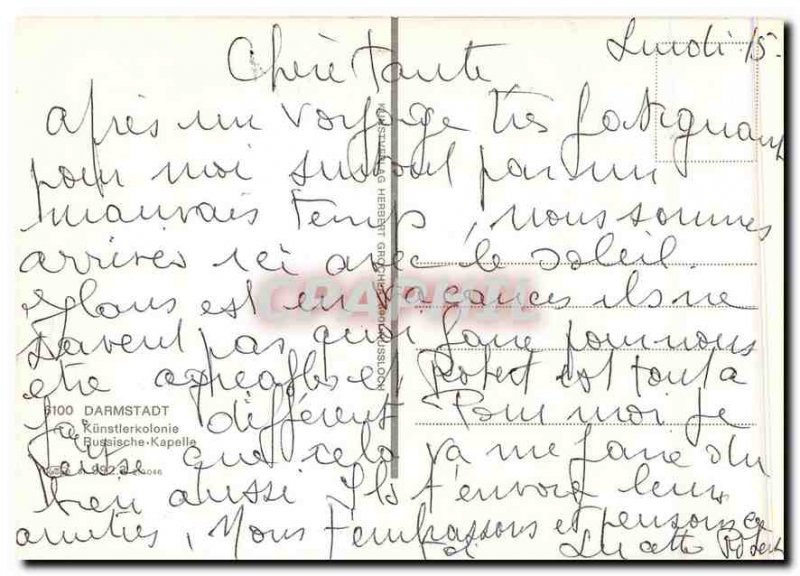 Lundi 15.
Chère tante
après un voyage très fatiguant
pour moi surtout par un
mauvais temps, nous sommes
arrivés ici avec le soleil.
Klaus est en vacances ils ne
savent pas quoi faire pour nous
etre agreables, Robert est tout a
fait différent. Pour moi je
pense que cela va me faire du
bien aussi Ils t'envoie leurs
amities, Nous t'embrassons et pensons
a Robert
KUNSTVERLAG HERBERT
6100 DARMSTADT
Künstlerkolonie
Russische-Kapelle
CPAPHIL